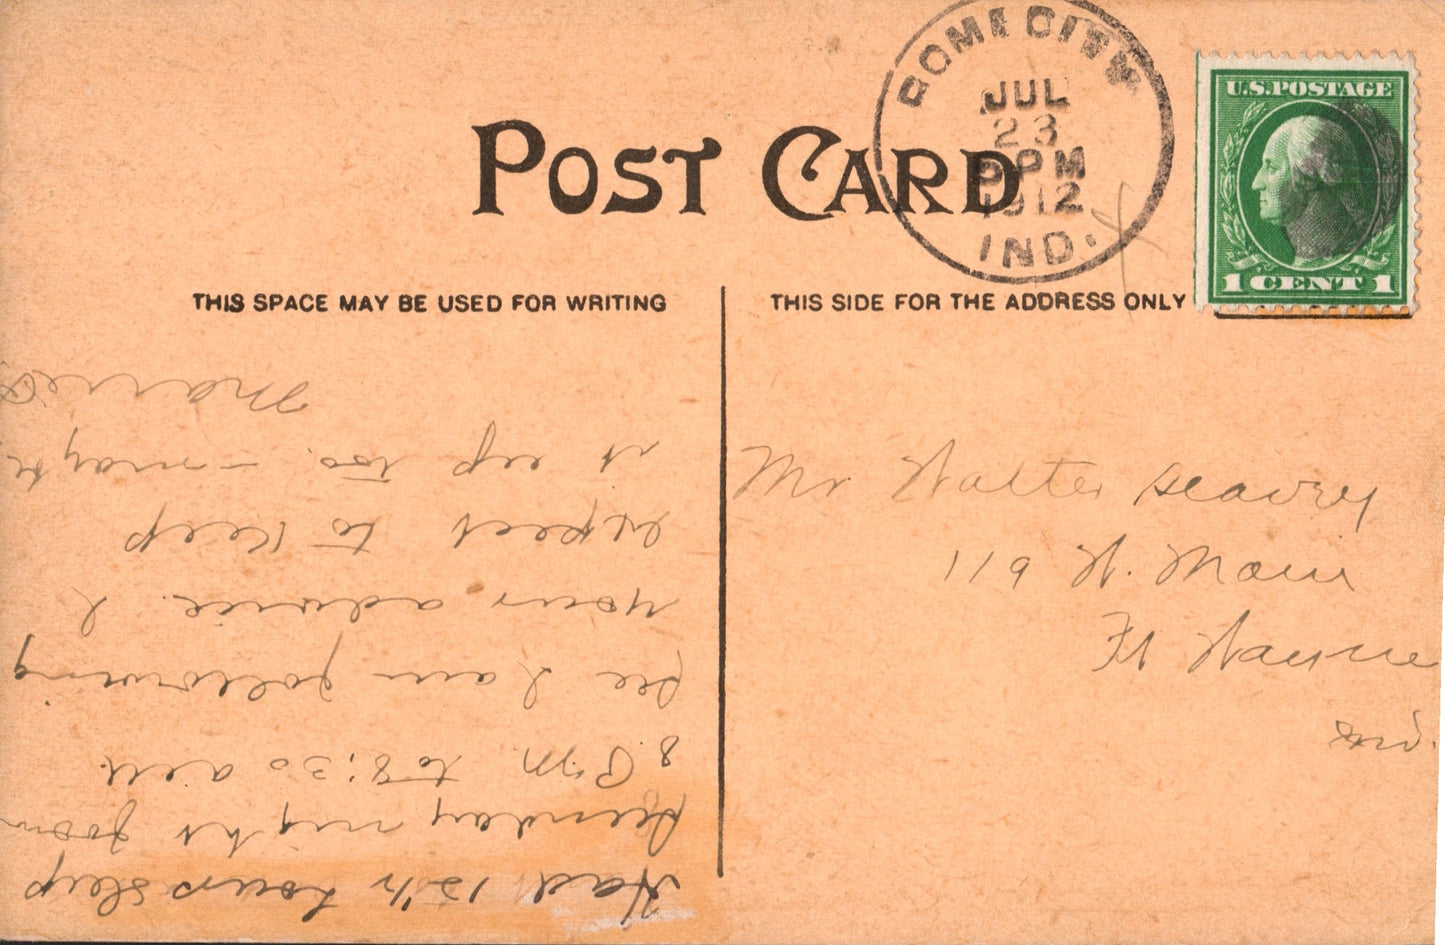 ROME CITY
JUL
23
PM
1912
IND.
U.S. POSTAGE
1 CENT 1
POST CARD
THIS SPACE MAY BE USED FOR WRITING
THIS SIDE FOR THE ADDRESS ONLY
Mr Walter Seavey
119 W. Main
Ft Wayne
Ind.
Had 12½ hours sleep
Sunday night from
8. P.M. to 8:30 am.
See I am following
your advice. I
expect to keep
it up too. – maybe